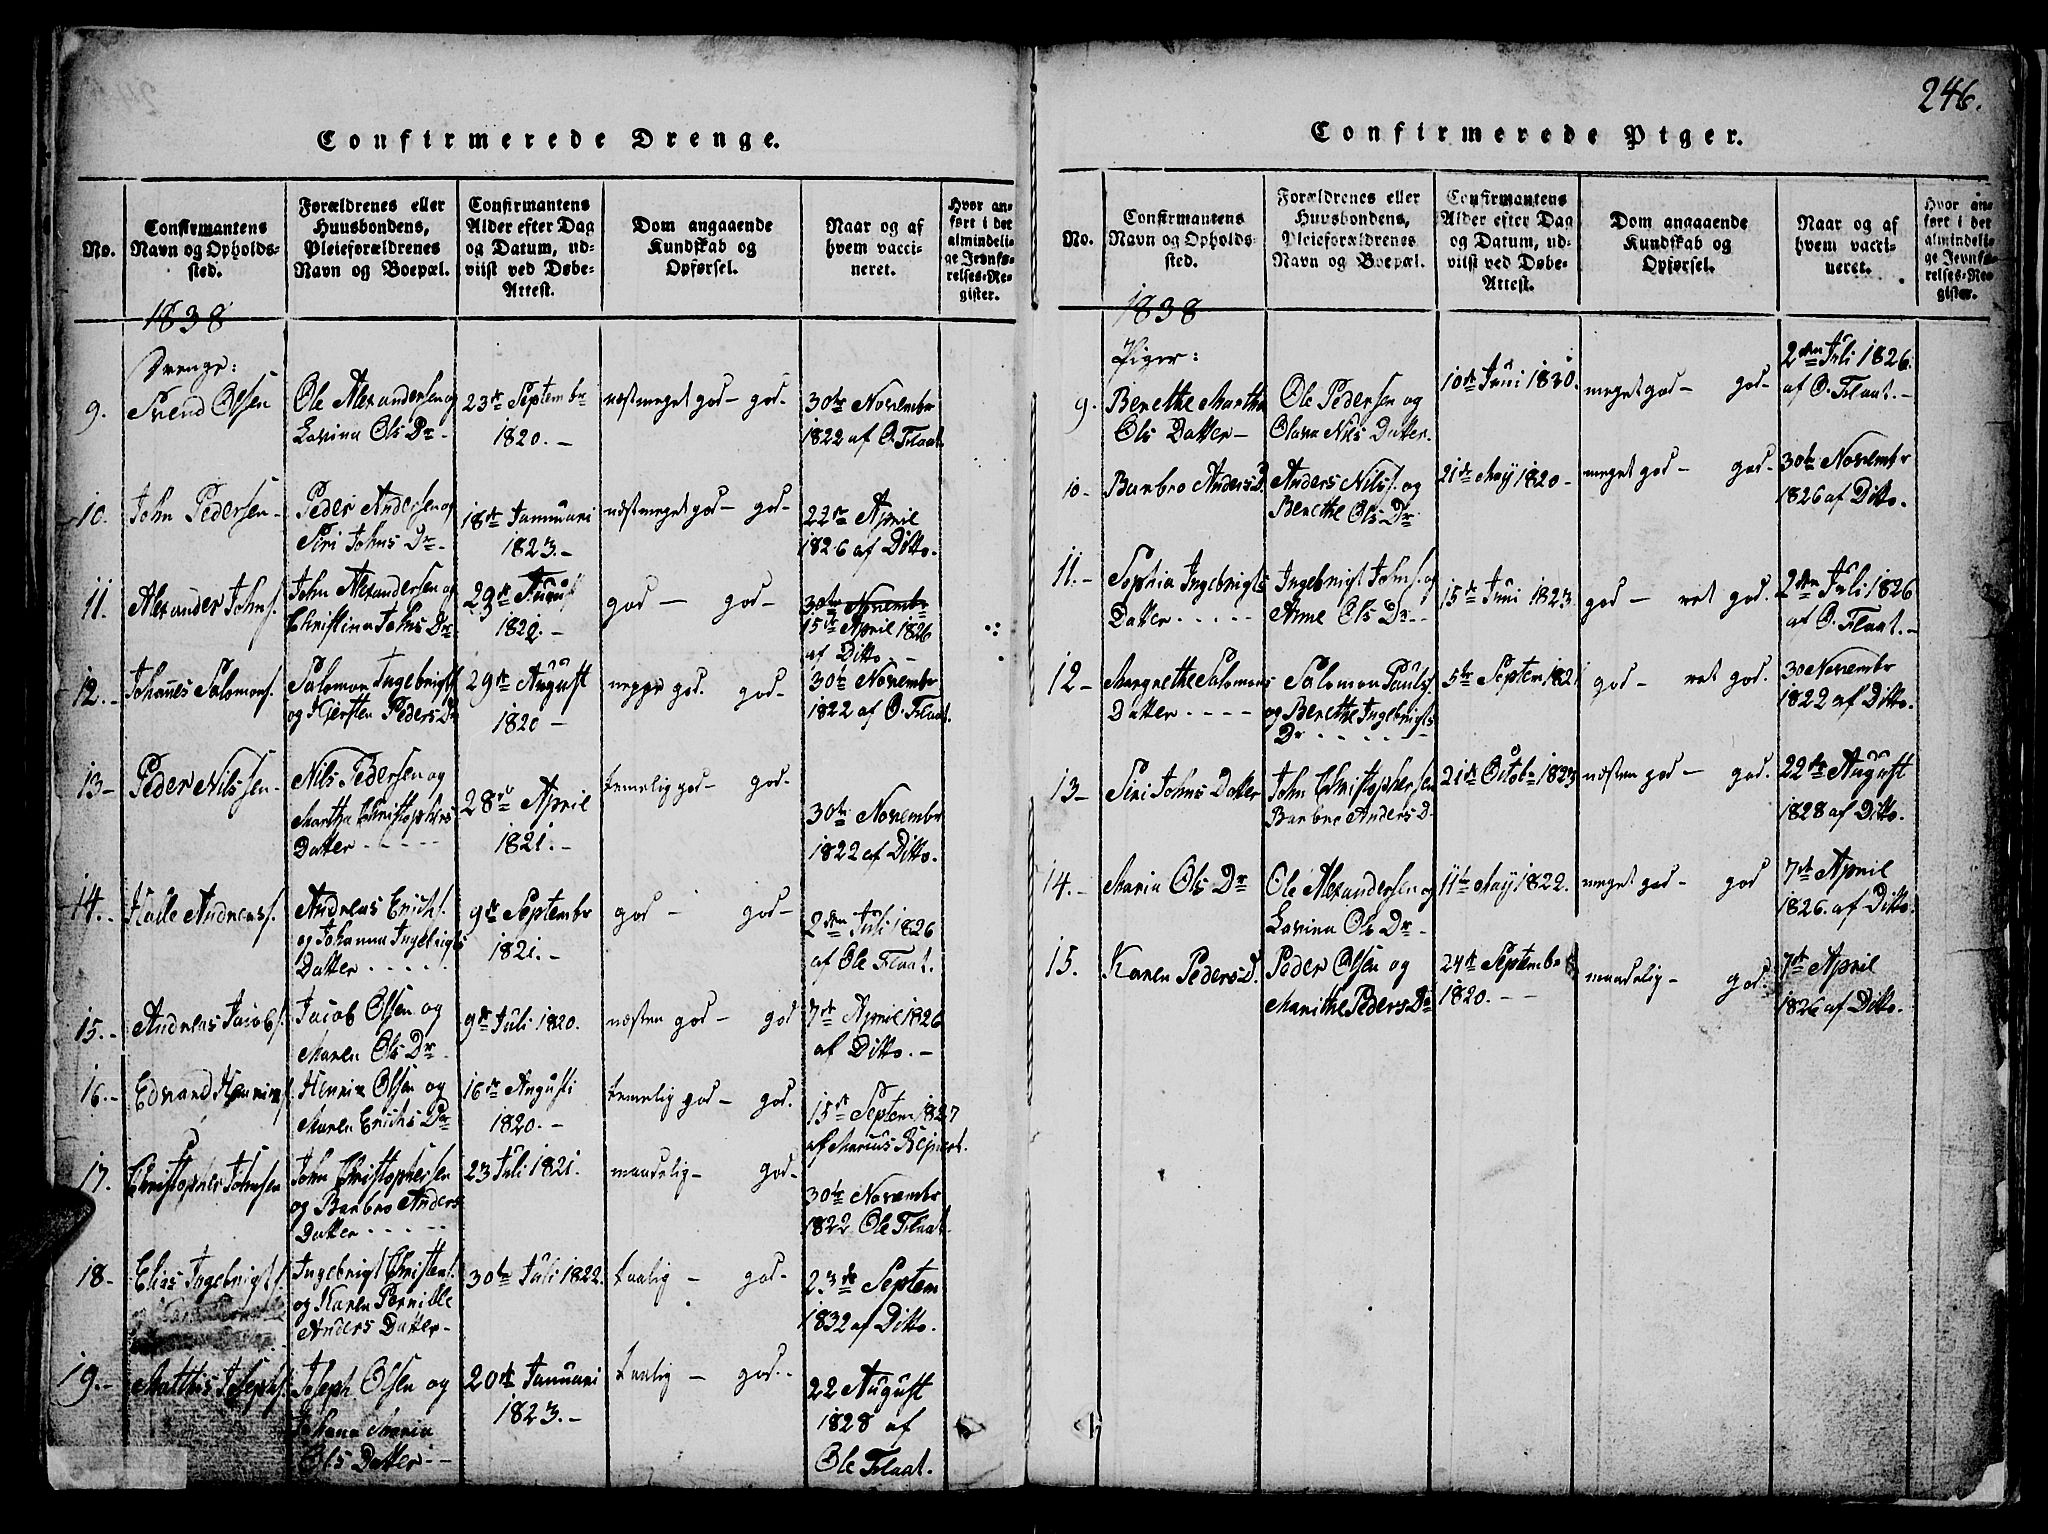 246.
Confirmerede Drenge.
No.
Confirmantens Navn og Opholdssted.
Forældrenes eller Huusbondens, Pleieforældrenes Navn og Boepæl.
Confirmantens Alder efter Dag og Datum, udviist ved Døbe-Attest.
Dom angaaende Kundskab og Opførsel.
Naar og af hvem vaccineret.
Hvor anført i det almindelige Jevnførelses-Register.
1838
Drenge:
9. Svend Olsen
Ole Alexandersen og
Lovina Ols Dr.
23de Septembr
1820.-
næst meget god - god-
30te Novembr
1822 af O. Flaat.
10. John Pedersen-
Peder Andersen og
Siri Johns Dr-
18de Januari
1823.-
næst meget god- god-
22de April
1826 af Ditto.
11. Alexander Johns.
John Alexandersen og
Christina Johns Dr
29de August
1822.-
god - god-
30te Novembr
15de April 1826
af Ditto.-
12.- Johannes Salomons.
Salomon Ingebrigts
og Kjersten Peders Dr
29de August
1820-
neppe god. god-
30te Novembr
1822 af O. Flaat.
13- Peder Nilssen-
Nils Pedersen og
Martha Christophers
Datter-----
28de April
1821.-
temelig god- god-
30te Novembr
1822 af Ditto.
14.- Halle Andreass.
Andreas Erichs.
og Johanna Ingebrigts
Datter.....
9de Septembr
1821.-
god - god-
2den Juli 1826
af Ole Flaat.
15.- Andreas Jacobs.
Jacob Olsen og
Maren Ols Dr
9de Juli 1820.
næsten god- god
7de April 1826
af Ditto.-
16.- Edvard Henriks.
Henrik Olsen og
Maren Erichs Dr
16de Augusti
1820.-
temelig god- god.
15de Septem 1827
af Marius
17. Christopher Johnsen
John Christophersen
og Barbro Anders
Datter.....
23 Juli 1821.
maadelig- god-
30te Novembr
1822 Ole Flaat.
18- Elias Ingebrigts.
Ingebrigt Christens.
og Karen Pernille
Anders Datter-
30te Juli 1822.
taalig - god-
23de Septem
1832 af Ditto.
19.- Matthis Josephs.
Joseph Olsen og
Johana Maria
Ols Datter--
20de Januari
1823.-
taalig - god.-
22 August
1828 af
Ole Flaat.
Confirmerede Piger.
No.
Confirmantens Navn og Opholdssted.
Forældrenes eller Huusbondens, Pleieforældrenes Navn og Boepæl.
Confirmantens Alder efter Dag og Datum, udviist ved Døbe-Attest.
Dom angaaende Kundskab og Opførsel.
Naar og af hvem vaccineret.
Hvor anført i det almindelige Jevnførelses-Register.
1838
Piger:
9. Berethe Martha
Ols Datter-
Ole Pedersen og
Olava Nils Datter.
10de Juni
meget god- god-
2den Juli 1826.
af O. Flaat.-
10- Barbro Anders D.
Anders Nilss. og
Berethe Ols Dr
21de May 1820-
meget god- god-
30te Novembr
1826 af Ditto.
11.- Sophia Ingebrigts
Datter.....
Ingebrigt Johns. og
Anne Ols Dr--
15de Juni 1823.
god- ret god.
2den Juli 1826
af O. Flaat.-
12- Margrethe Salomons
Datter----
Salomon Pauls.
og Berethe Ingebrigts
Dr.....
5te Septem 1821
god- ret god.
30 Novembr
1822 af Ditto.
13- Siri Johns Datter
John Christophersen
Barbro Anders D.
21de Octobr 1823
næsten god- god.
22de August
1828 af Ditto.
14.- Maria Ols Dr
Ole Alexandersen og
Lovina Ols Dr-
11te May 1822.
meget god- god
7de April
1826. af Ditto.
15. Karen Peders D.
Peder Olsen og
Marithe Peders Dr
24de Septembr
1820.--
maadelig- god.
7de April
1826 af Ditto.